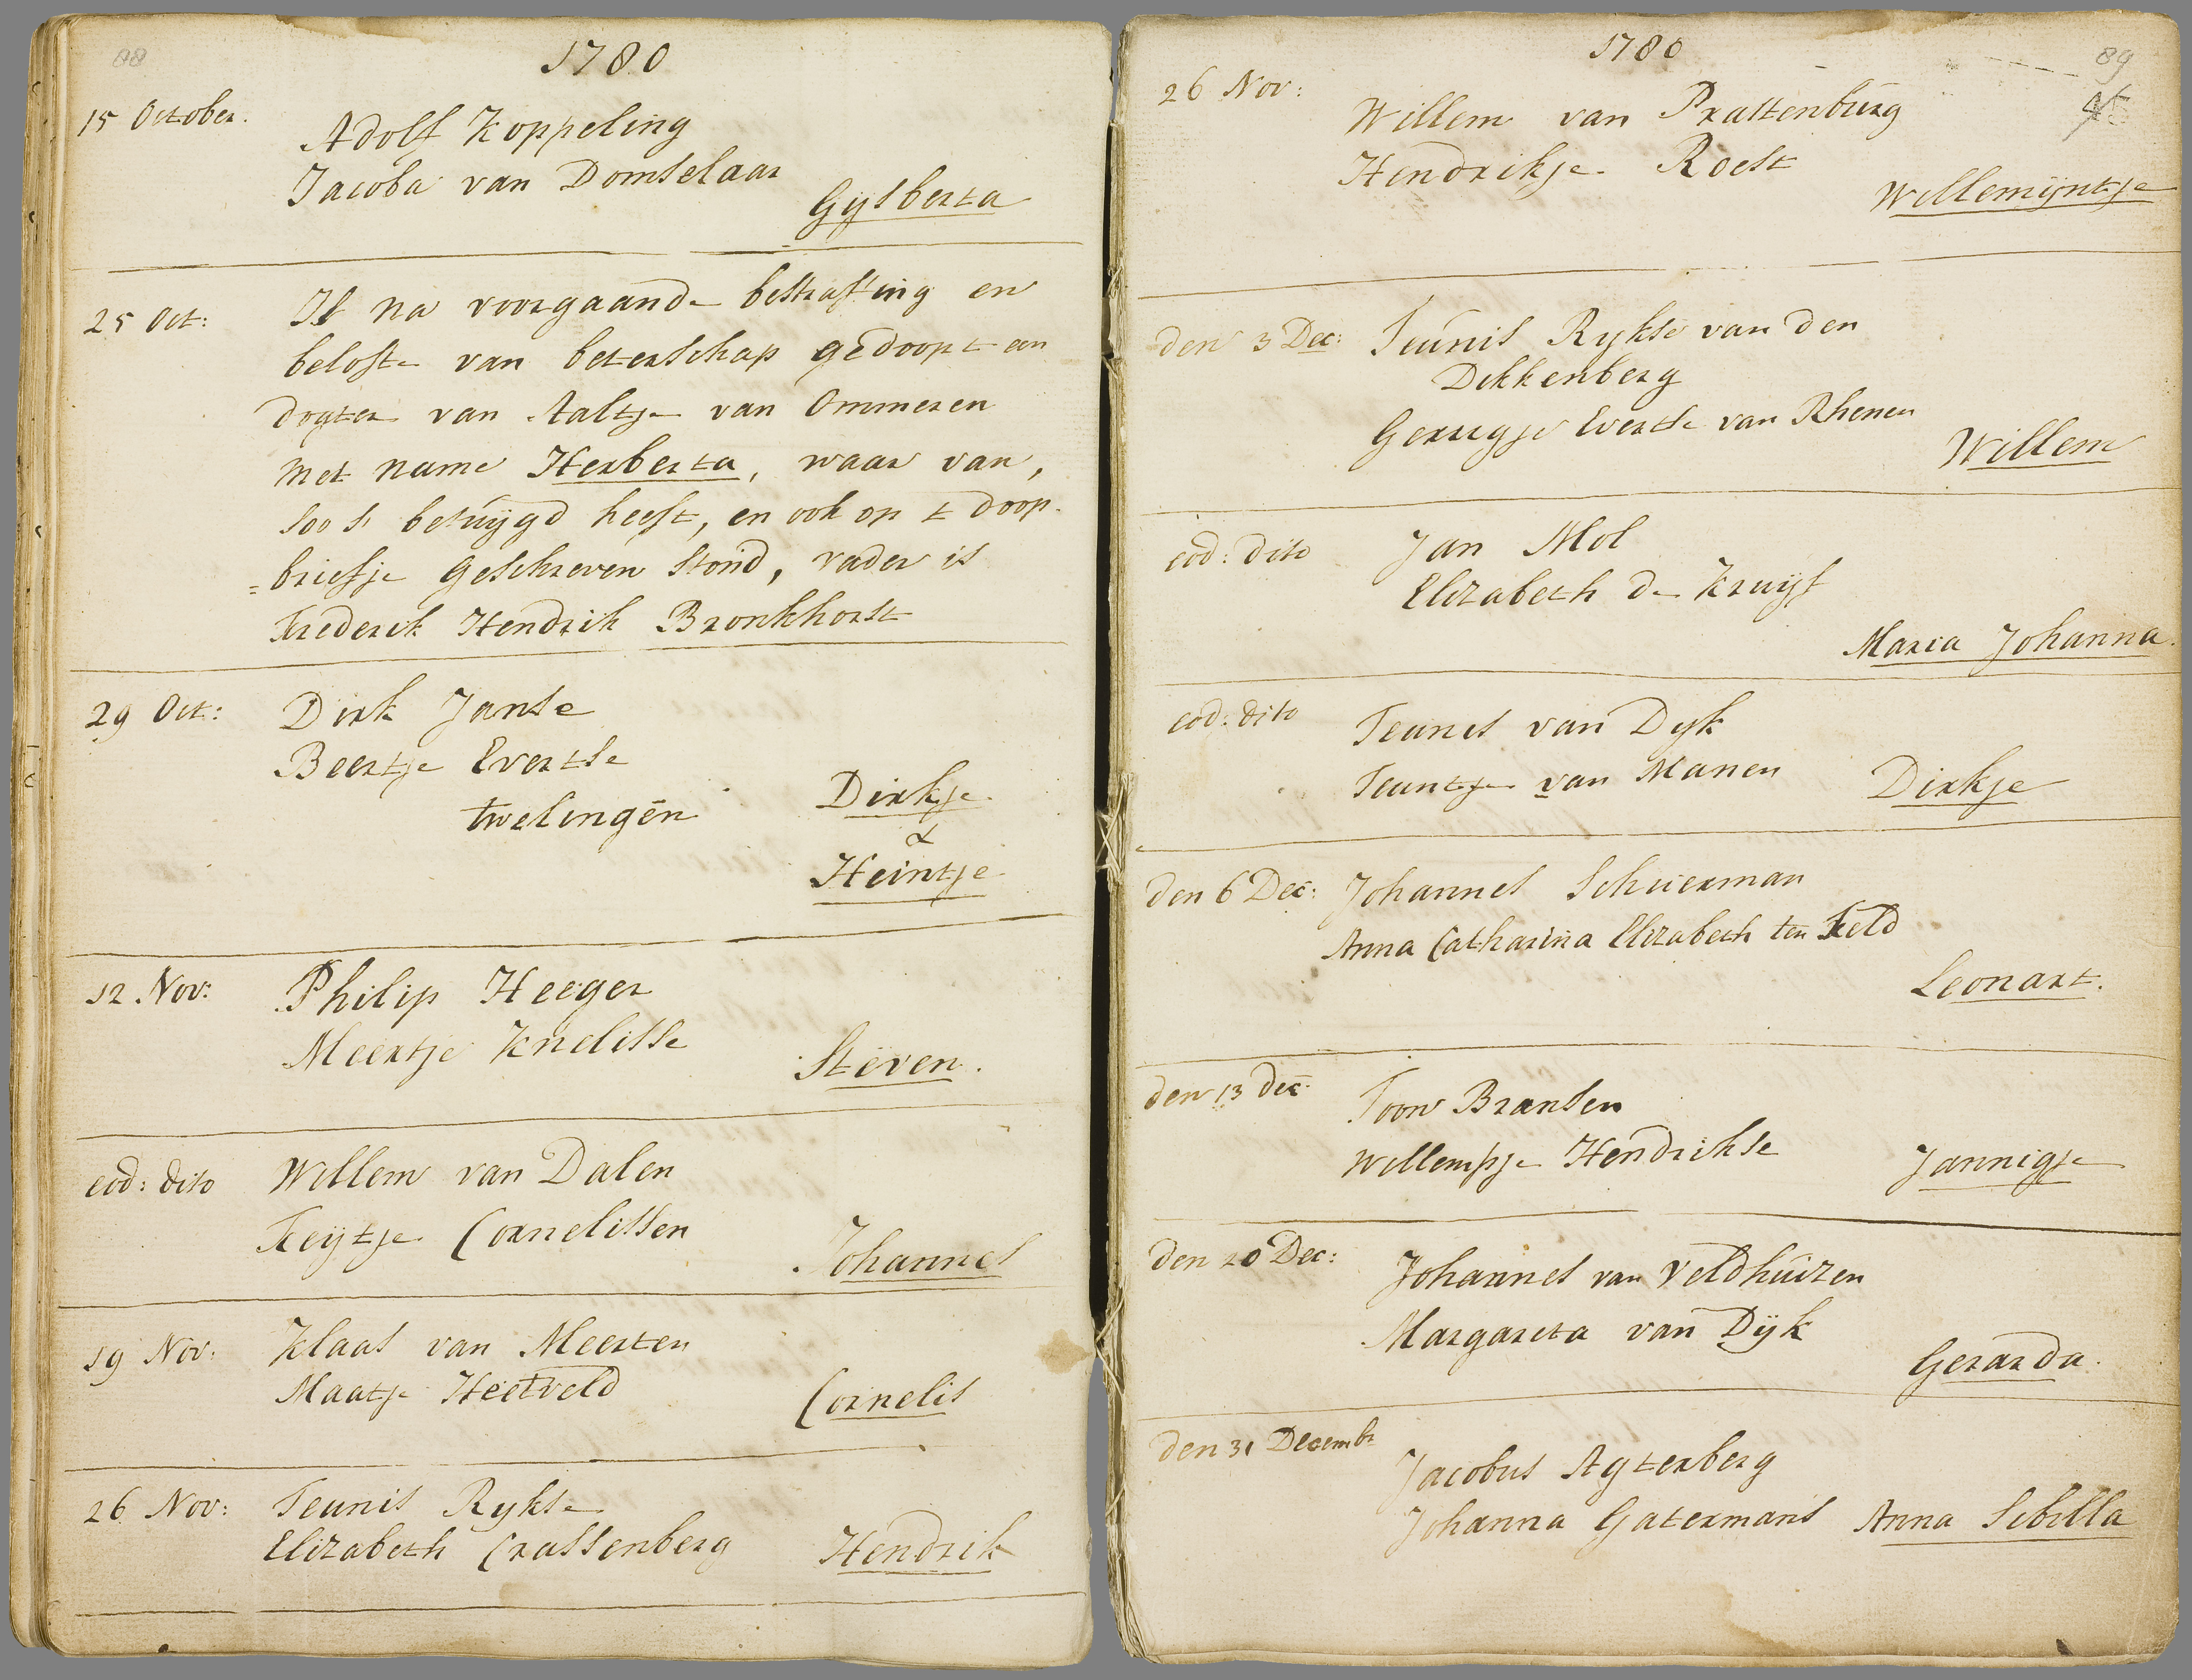 88
1780
15 October.
Adolf Koppeling
Jacoba van Domselaar
Gysberta
25 Oct:
Is na voorgaande bestraffing en
belofte van beterschap gedoopt een
dogter van Aaltje van Ommeren
met name Herberta, waar van,
soo s' betuygd heeft, en ook op t doop-
=briefje geschreven stond, vader is
Frederik Hendrik Bronkhorst
29 Oct:
Dirk Janse
Beertje Evertse
twelingen
Dirkje
&
Heintje
12 Nov:
Philip Heeger
Meertje Knelisse
Steven.
eod: dito
Willem van Dalen
Feijtje Cornelissen
Johannes
19 Nov:
Klaas van Meerten
Maatje Heetveld
Cornelis
26 Nov:
Teunis Rykse
Elizabeth Crassenberg
Hendrik
1780
89
45
26 Nov:
Willem van Prattenburg
Hendrikje Roest
Willemijntje
den 3 Dec:
Teunis Rykse van den
Dikkenberg
Gerregje Evertse van Rhenen
Willem
eod: dito
Jan Mol
Elizabeth de Kruijf
Maria Johanna.
eod: dito
Teunes van Dyk
Teuntje van Manen
Dirkje
den 6 Dec:
Johannes Schuerman
Anna Catharina Elizabeth ten Feld
Leonart.
den 13 Dec
Toon Bransen
Willempje Hendrikse
Jannigje
den 20 Dec:
Johannes van Veldhuizen
Margareta van Dijk
Gerarda.
den 31 Decembr
Jacobus Agterberg
Johanna Gatermans Anna Sibilla